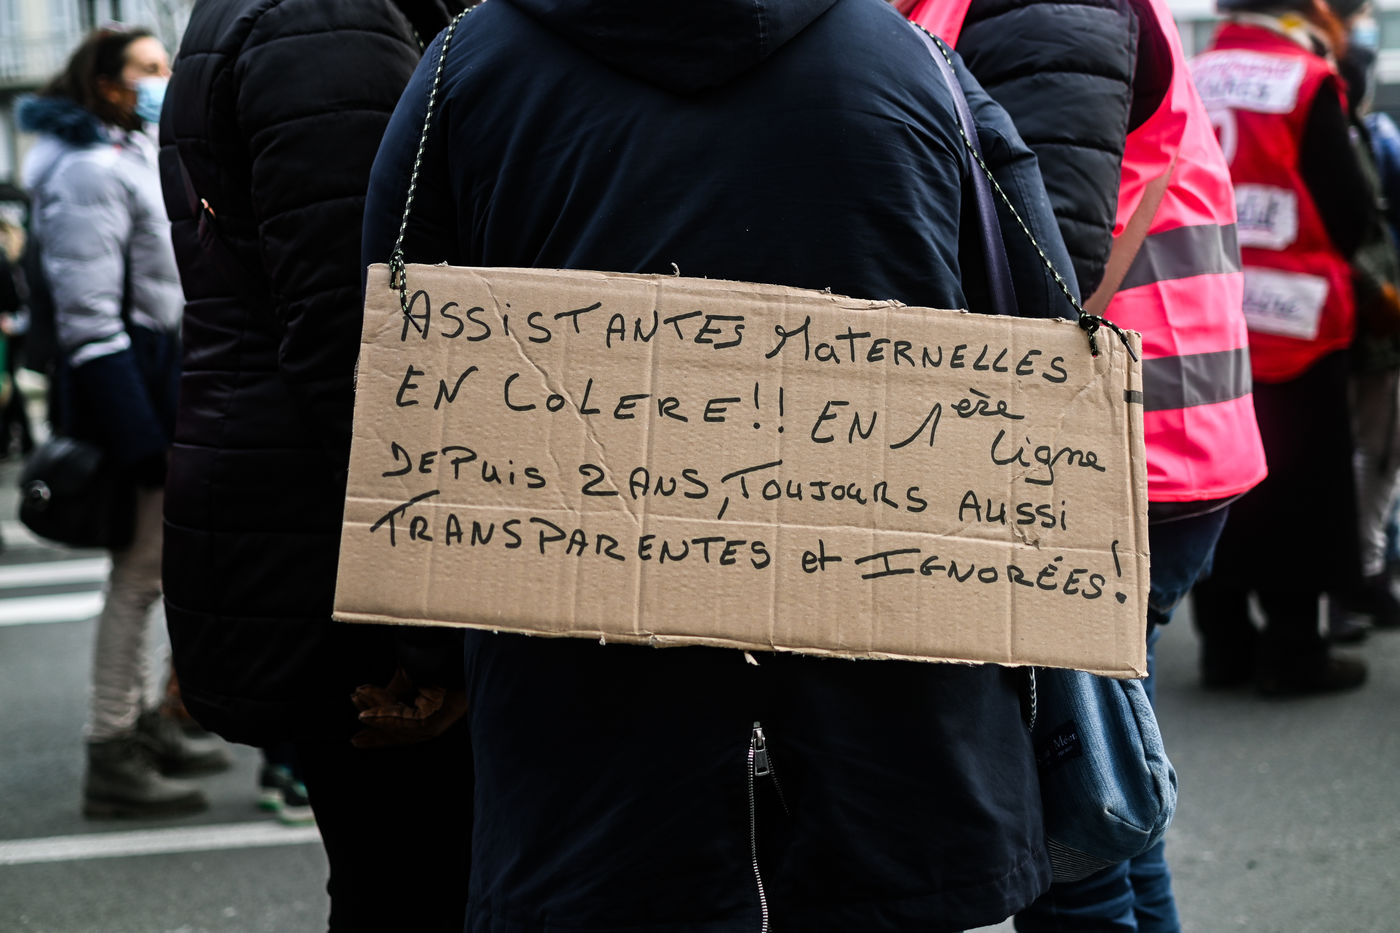 ASSiSTANTES MaTERNELLES
EN CoLERE!! EN 1ère ligne
DEPuis 2 ANS, TouJouRS AUSSi
TRANSPARENTES et IGNORÉES!